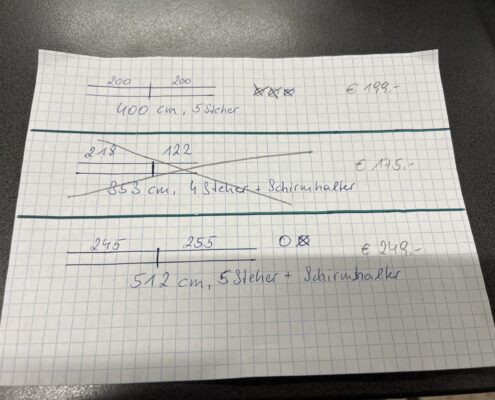 200 200
€ 199.-
400 cm, 5 Steher
218 122
€ 175.-
353 cm, 4 Steher + Schirmhalter
245 255
€ 249.-
512 cm, 5 Steher + Schirmhalter